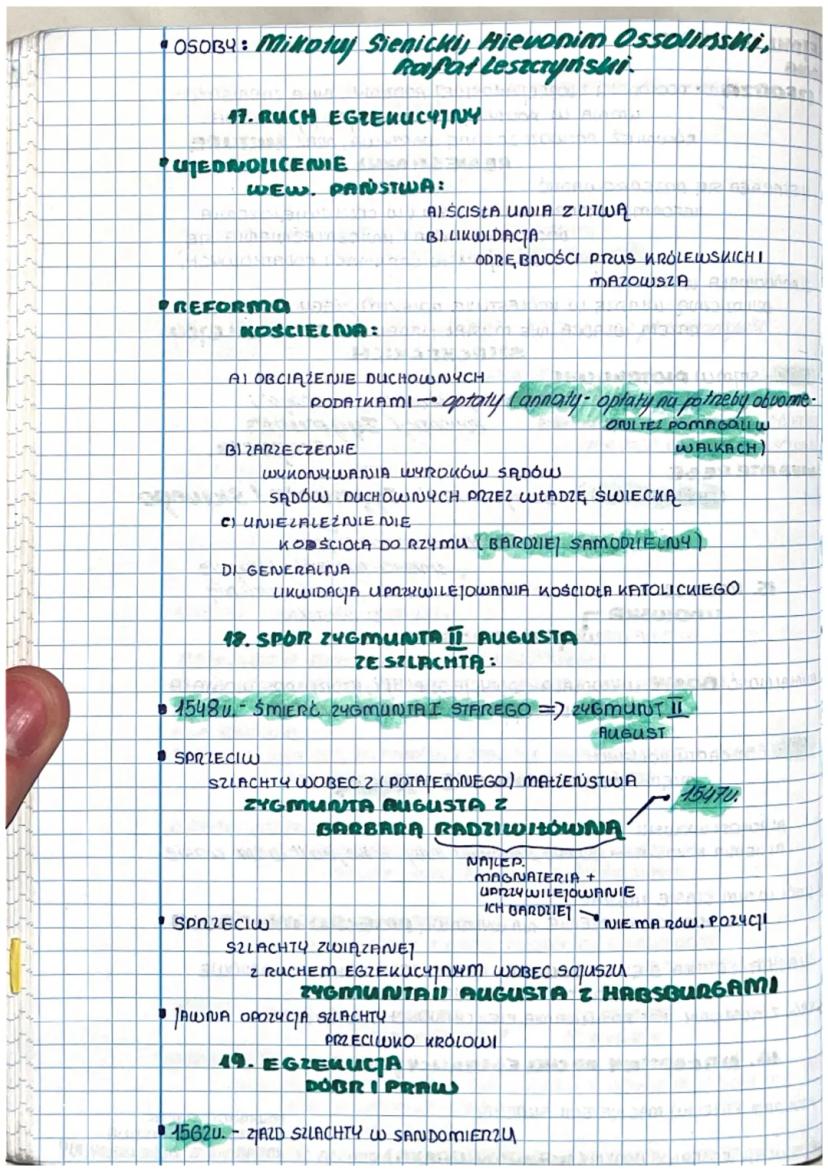 OSOBY: Mikołaj Sienicki, Hieronim Ossoliński,
Rafał Leszczyński.
17. RUCH EGZEKUCYJNY
UJEDNOLICENIE
WEW. PAŃSTWA:
A) ŚCISŁA UNIA Z LITWĄ
B) LIKWIDACJA
ODRĘBNOŚCI PRUS KRÓLEWSKICH I
MAZOWSZA
REFORMA
KOŚCIELNA:
A) OBCIĄŻENIE DUCHOWNYCH
PODATKAMI → opłaty (annaty - opłaty na potrzeby obronne-
ONI TEŻ POMAGALI W
WALKACH)
B) ZARZECZENIE
WYKONYWANIA WYROKÓW SĄDÓW
SĄDÓW DUCHOWNYCH PRZEZ WŁADZĘ ŚWIECKĄ
C) UNIEZALEŻNIENIE
KOŚCIOŁA DO RZYMU (BARDZIEJ SAMODZIELNY)
D) GENERALNA
LIKWIDACJA UPRZYWILEJOWANIA KOŚCIOŁA KATOLICKIEGO
18. SPÓR ZYGMUNTA II AUGUSTA
ZE SZLACHTĄ:
1548r. - ŚMIERĆ ZYGMUNTA I STAREGO => ZYGMUNT II
AUGUST
SPRZECIW
SZLACHTY WOBEC Z (POTAJEMNEGO) MAŁŻEŃSTWA
ZYGMUNTA AUGUSTA Z → 1547r.
BARBARĄ RADZIWIŁŁÓWNĄ
NAJLEP.
MAGNATERIA +
UPRZYWILEJOWANIE
ICH BARDZIEJ → NIE MA RÓW. POZYCJI
SPRZECIW
SZLACHTY ZWIĄZANEJ
Z RUCHEM EGZEKUCYJNYM WOBEC SOJUSZU
ZYGMUNTA II AUGUSTA Z HABSBURGAMI
JAWNA OPOZYCJA SZLACHTY
PRZECIWKO KRÓLOWI
19. EGZEKUCJA
DÓBR I PRAW
1562r. - ZJAZD SZLACHTY W SANDOMIERZU